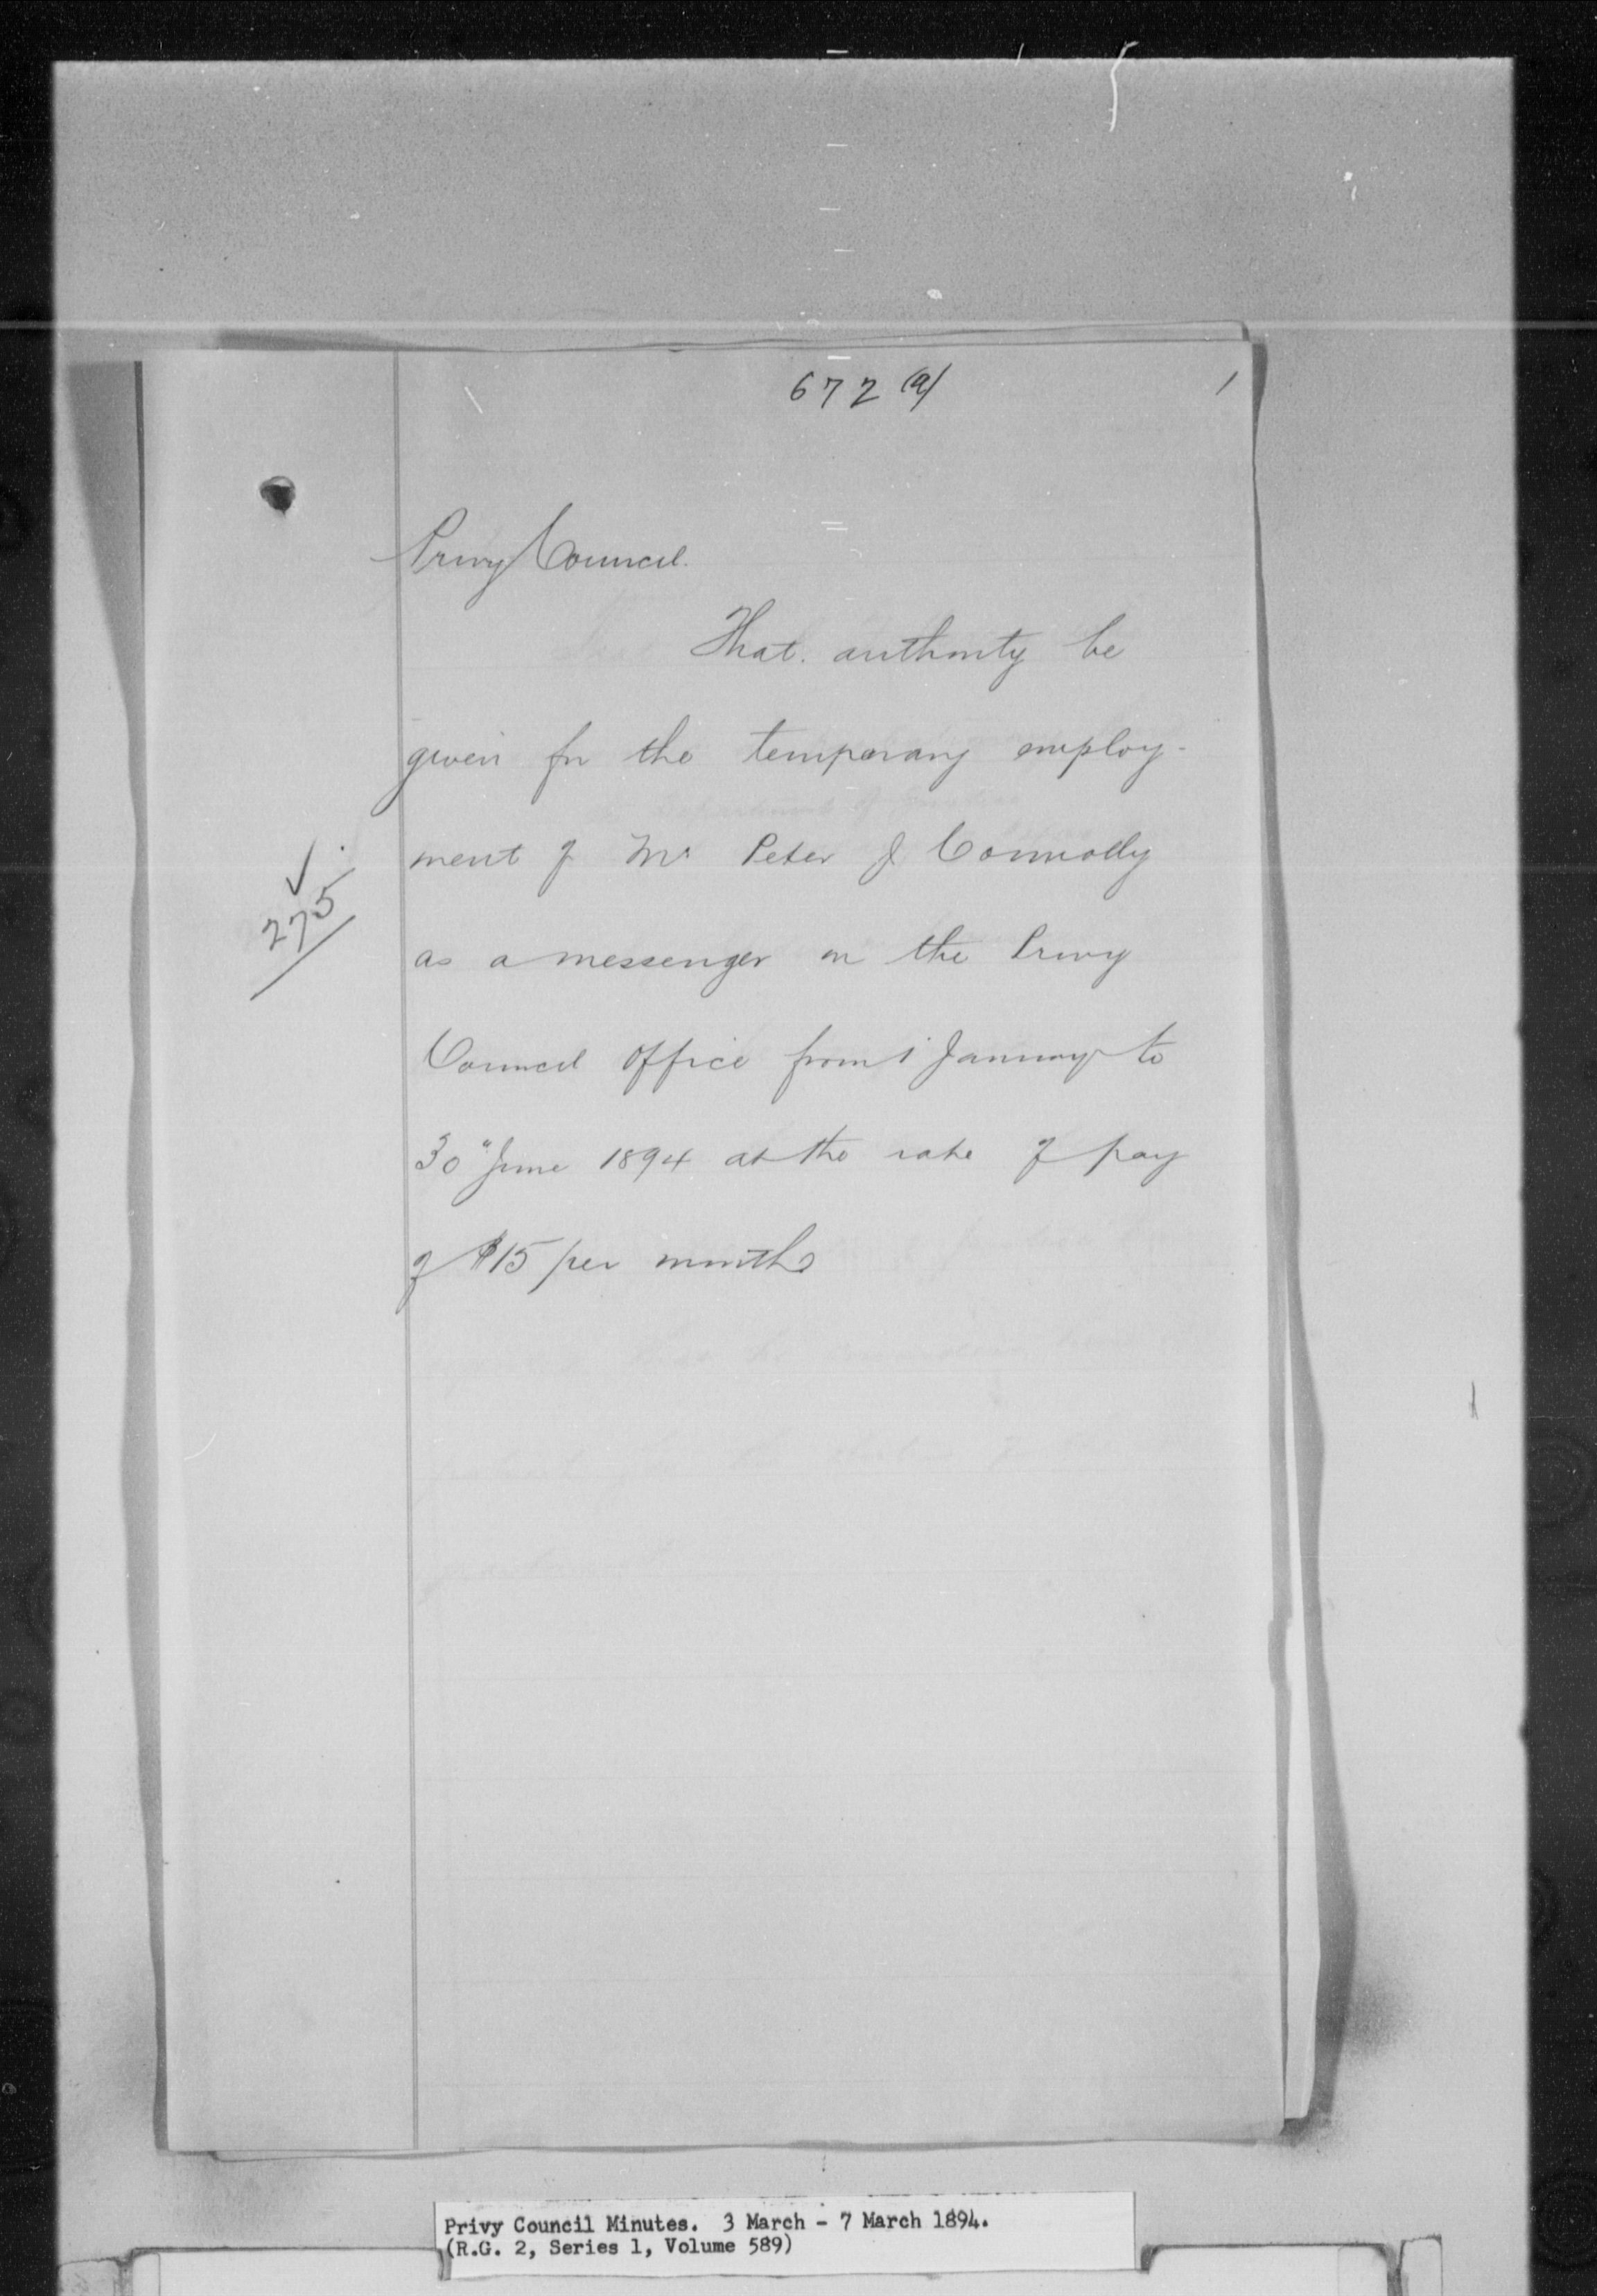 672 (a)
1
Privy Council.
That authority be
given for the temporary employ-
ment of Mr Peter J Connolly
275
as a messenger in the Privy
Council Office from 1 January to
30" June 1894 at the rate of pay
of $15 per month
Privy Council Minutes. 3 March - 7 March 1894.
(R.G. 2, Series 1, Volume 589)